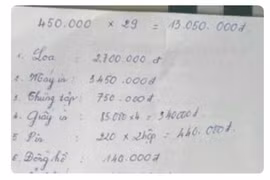 450.000 × 29 = 13.050.000đ
1. Loa : 2.700.000đ
2. Máy in : 3450.000đ
3. Thùng rác : 750.000đ
4. Giấy in : 85.000x4 = 340000đ
5. Pin : 220 x 2hộp = 440.000đ
6. Đồng hồ : 140.000đ